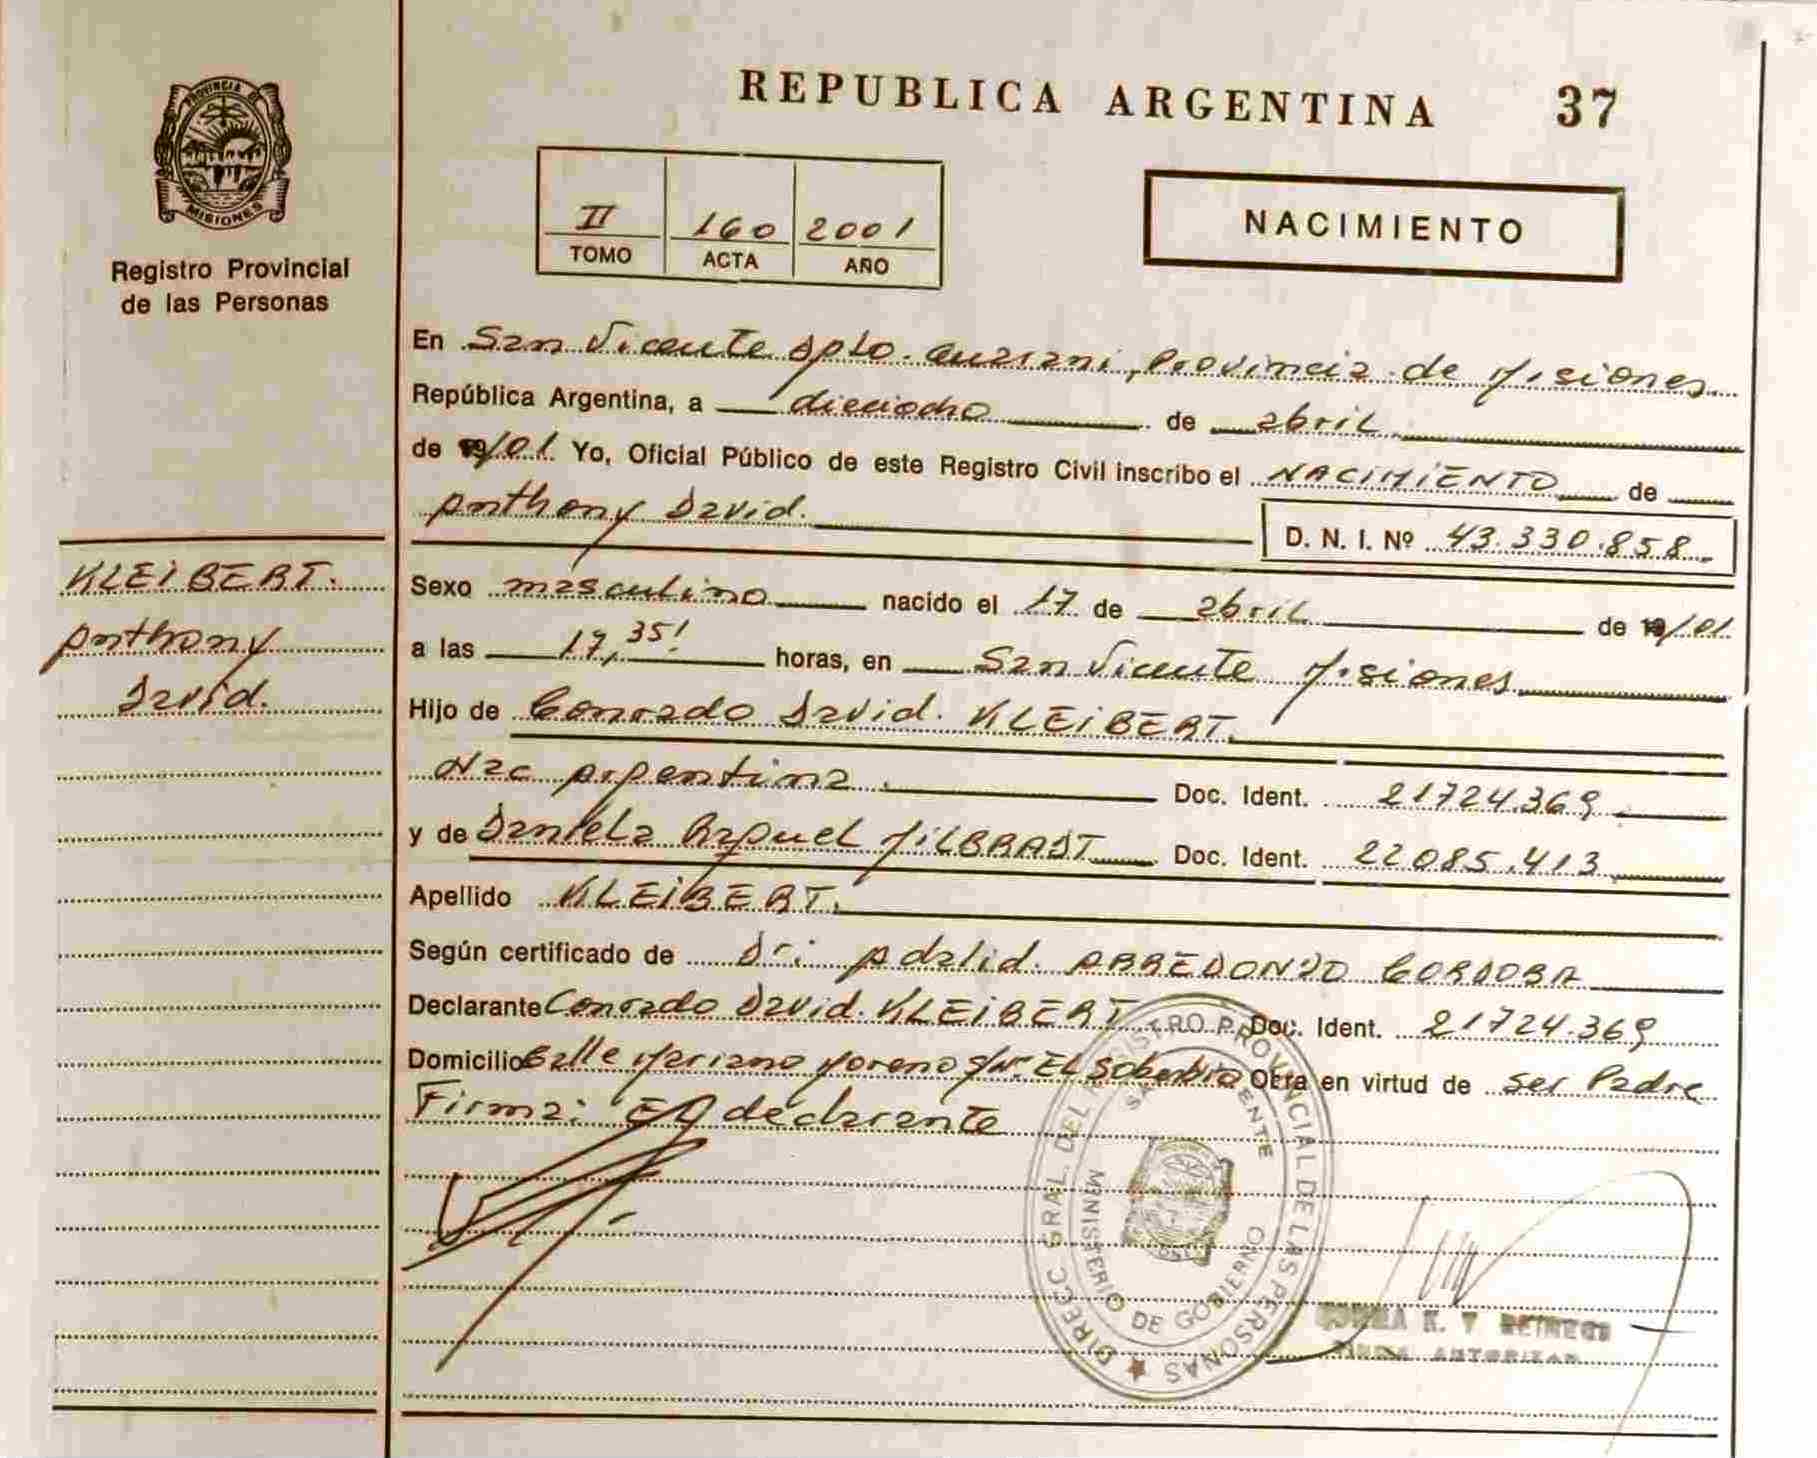 REPUBLICA ARGENTINA 37
PROVINCIA DE
MISIONES
Registro Provincial
de las Personas
II 160 2001
TOMO ACTA AÑO
NACIMIENTO
En San Vicente Dpto. Guarani, Provincia de Misiones
República Argentina, a dieciocho de abril
de 19/01 Yo, Oficial Público de este Registro Civil inscribo el NACIMIENTO de
Anthony David.
D. N. I. Nº 43.330.858
KLEIBERT.
Anthony
David.
Sexo masculino nacido el 17 de abril de 19/01
a las 17,35' horas, en San Vicente Misiones
Hijo de Conrado David. KLEIBERT.
Nac Argentina. Doc. Ident. 21724.369
y de Daniela Raquel MILBRADT Doc. Ident. 22085.413
Apellido KLEIBERT.
Según certificado de Dr: Adalid. ARREDONDO CORDOBA
Declarante Conrado David. KLEIBERT Doc. Ident. 21724.369
Domicilio Calle Mariano Moreno s/Nº El Soberbio Obra en virtud de ser Padre
Firma: El declarante
DIRECC. GRAL. DEL REGISTRO PROVINCIAL DE LAS PERSONAS
SAN VICENTE
MINISTERIO DE GOBIERNO